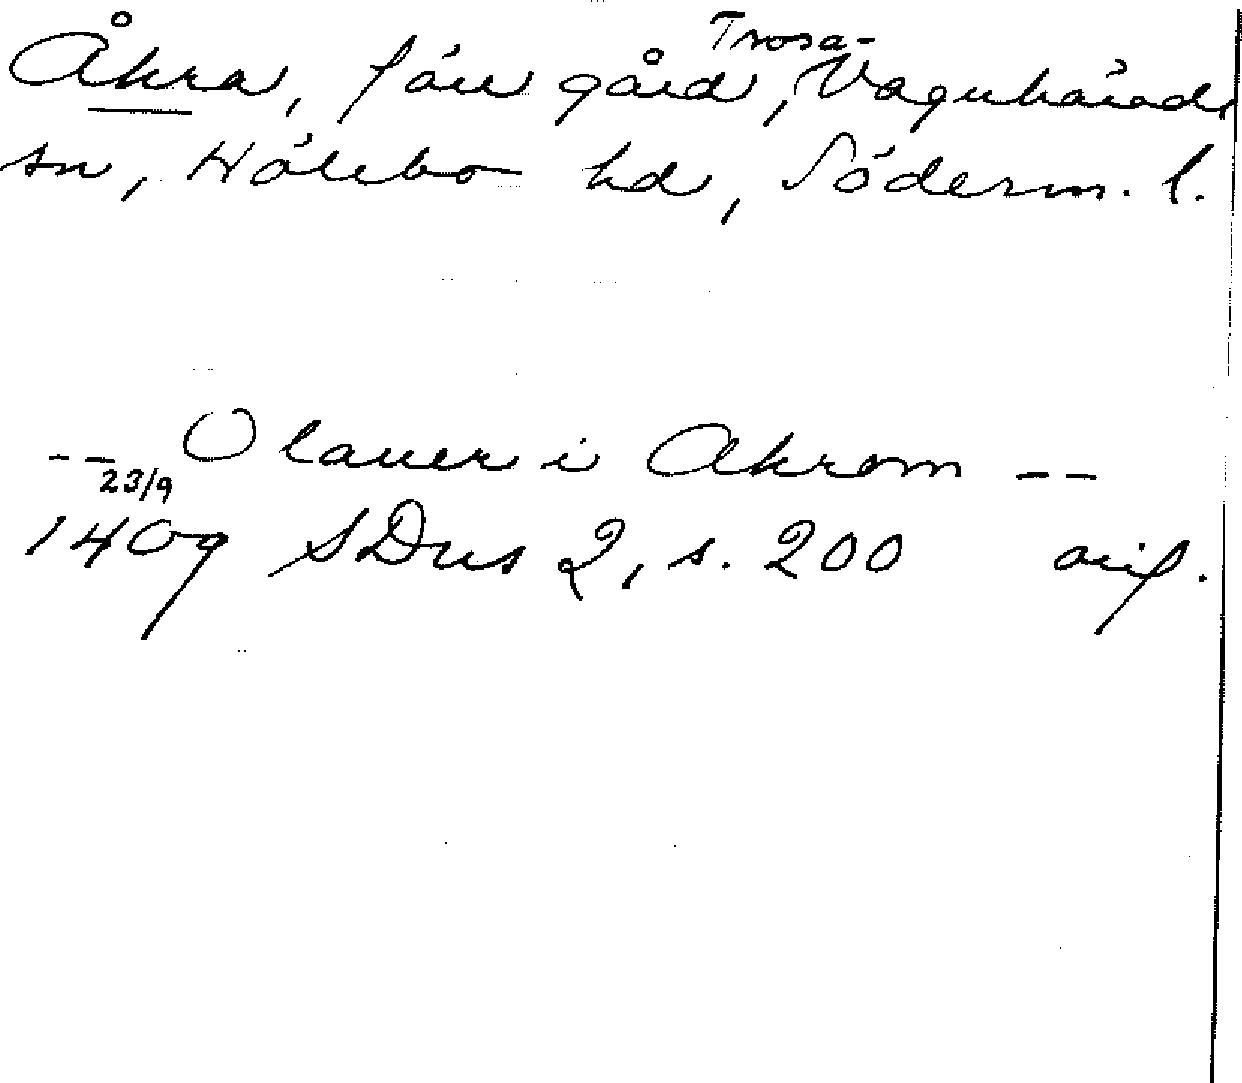 Trosa-
Åkra, förr gård, Vagnhärads
sn, Hölebo hd, Söderm. l.
-- Olauer i Akrom --
23/9
1409 SDns 2, s. 200 orig.